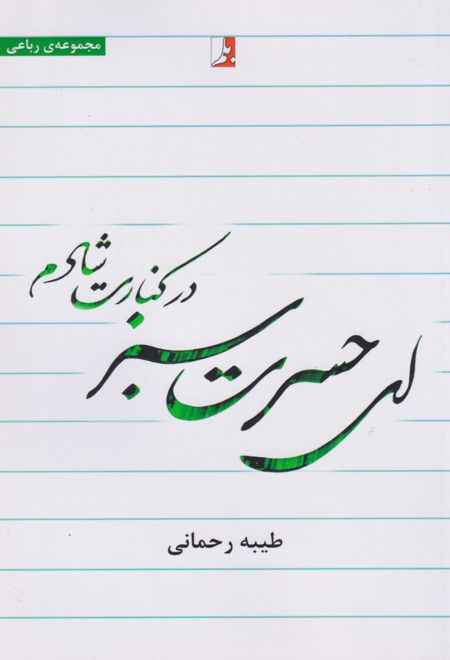 مجموعه‌ی رباعی
بلم
ای حسرت سبز
در کنارت شادم
طیبه رحمانی